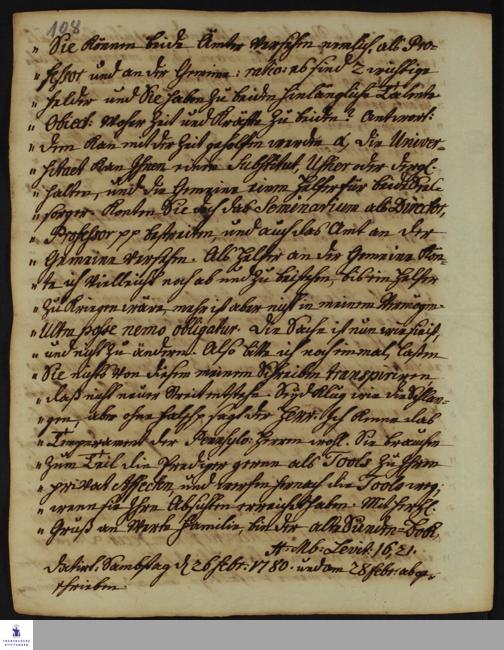 108
" Sie können beide Ämter versehen nemlich als Pro-
" fessor und an der Gemeine: ratio: es sind 2 wüchtige
" felder und Sie haben zu beiden hinlängliche Talente
" Obiect: woher Zeit und Kräfte zu beiden? Antwort:
" dem kan mit der Zeit geholfen werden a, die Univer-
" sitaet kan Ihnen einen Substitut, Usher oder dergl.
" halten, und die Gemeine einen Helfer für beide Seel-
" sorger. Konten Sie doch das Seminarium als Director,
" Professor pp bestreiten und auch das Amt an der
" Gemeine versehen. Als Helfer an der Gemeine kön-
" te ich vielleicht noch ab und zu beistehen, bis ein Helfer
" zu kriegen wäre, mehr ist aber nicht in meinem Vermögen
" Ultra posse nemo obligatur. Die Sache ist nun wie sie ist,
" und nicht zu ändern. Also bitte ich noch einmal, lassen
" Sie nichts von diesem meinem Schreiben transpiriren
" daß nicht neuer Streit entstehe. Seyd klug wie die Schlan-
" gen, aber ohne falsch sagt der Herr. Ich kenne das
" Temperament der Pensylv: Herren wohl. Sie brauchen
" zum Teil die Prediger gerne als Tools zu Ihren
" privat Affecten und werfen hernach die Tools weg,
" wenn sie Ihre Absichten erreicht haben. Mit herzl.
" Gruß an Werte Familie, bin der alte Sünden-Bok,
H. Mb. Levit: 16, 21.
Datirt: Sambstag d 26 Febr: 1780. und am 28 Febr: abge-
schrieben
FRANCKESCHE
STIFTUNGEN